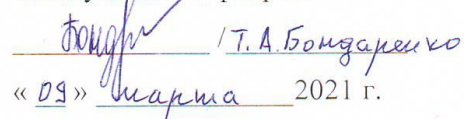 /Т. А. Бондаренко
« 09 » марта 2021 г.